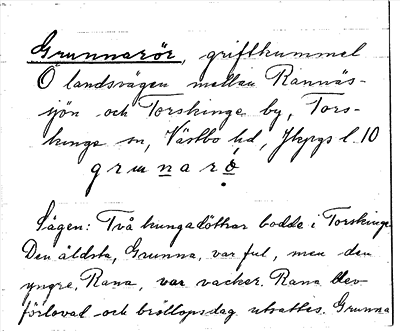 Grunnarör, griftkummel
O landsvägen mellan Rannäs-
sjön och Torskinge by, Tors-
kinge sn, Västbo hd, Jkpgs l. 10
grunarö
Sägen: Två kungadöttrar bodde i Torskinge
Den äldsta, Grunna, var ful, men den
yngre, Rana, var vacker. Rana blev
förlovad och bröllopsdag utsattes. Grunna